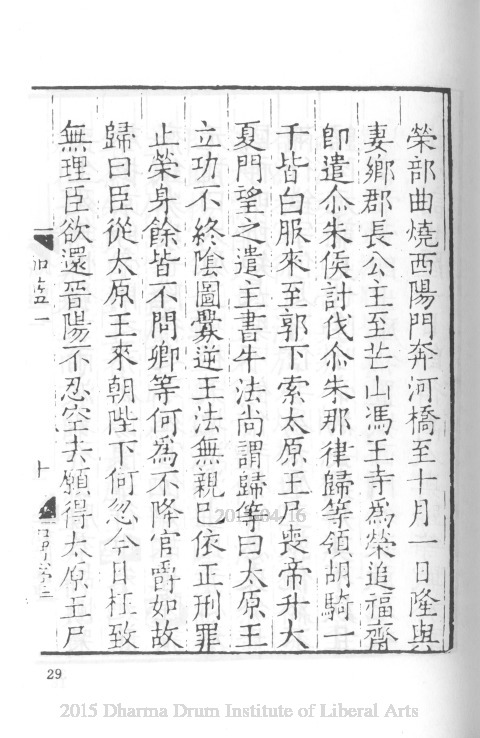 榮部曲燒西陽門奔河橋至十月一日隆與
妻鄉郡長公主至芒山馮王寺爲榮追福齋
卽遣尒朱侯討伐尒朱那律歸等領胡騎一
千皆白服來至郭下索太原王尸喪帝升大
夏門望之遣主書牛法尚謂歸等曰太原王
立功不終陰圖釁逆王法無親已依正刑罪
止榮身餘皆不問卿等何爲不降官爵如故
歸曰臣從太原王來朝陛下何忽今日枉致
無理臣欲還晉陽不忍空去願得太原王尸
加藍一
十
2015/04/16
29
2015 Dharma Drum Institute of Liberal Arts